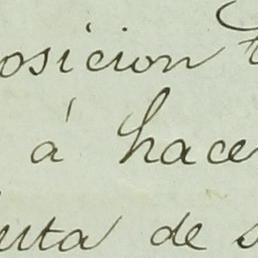 osicion
á hace
uta de s